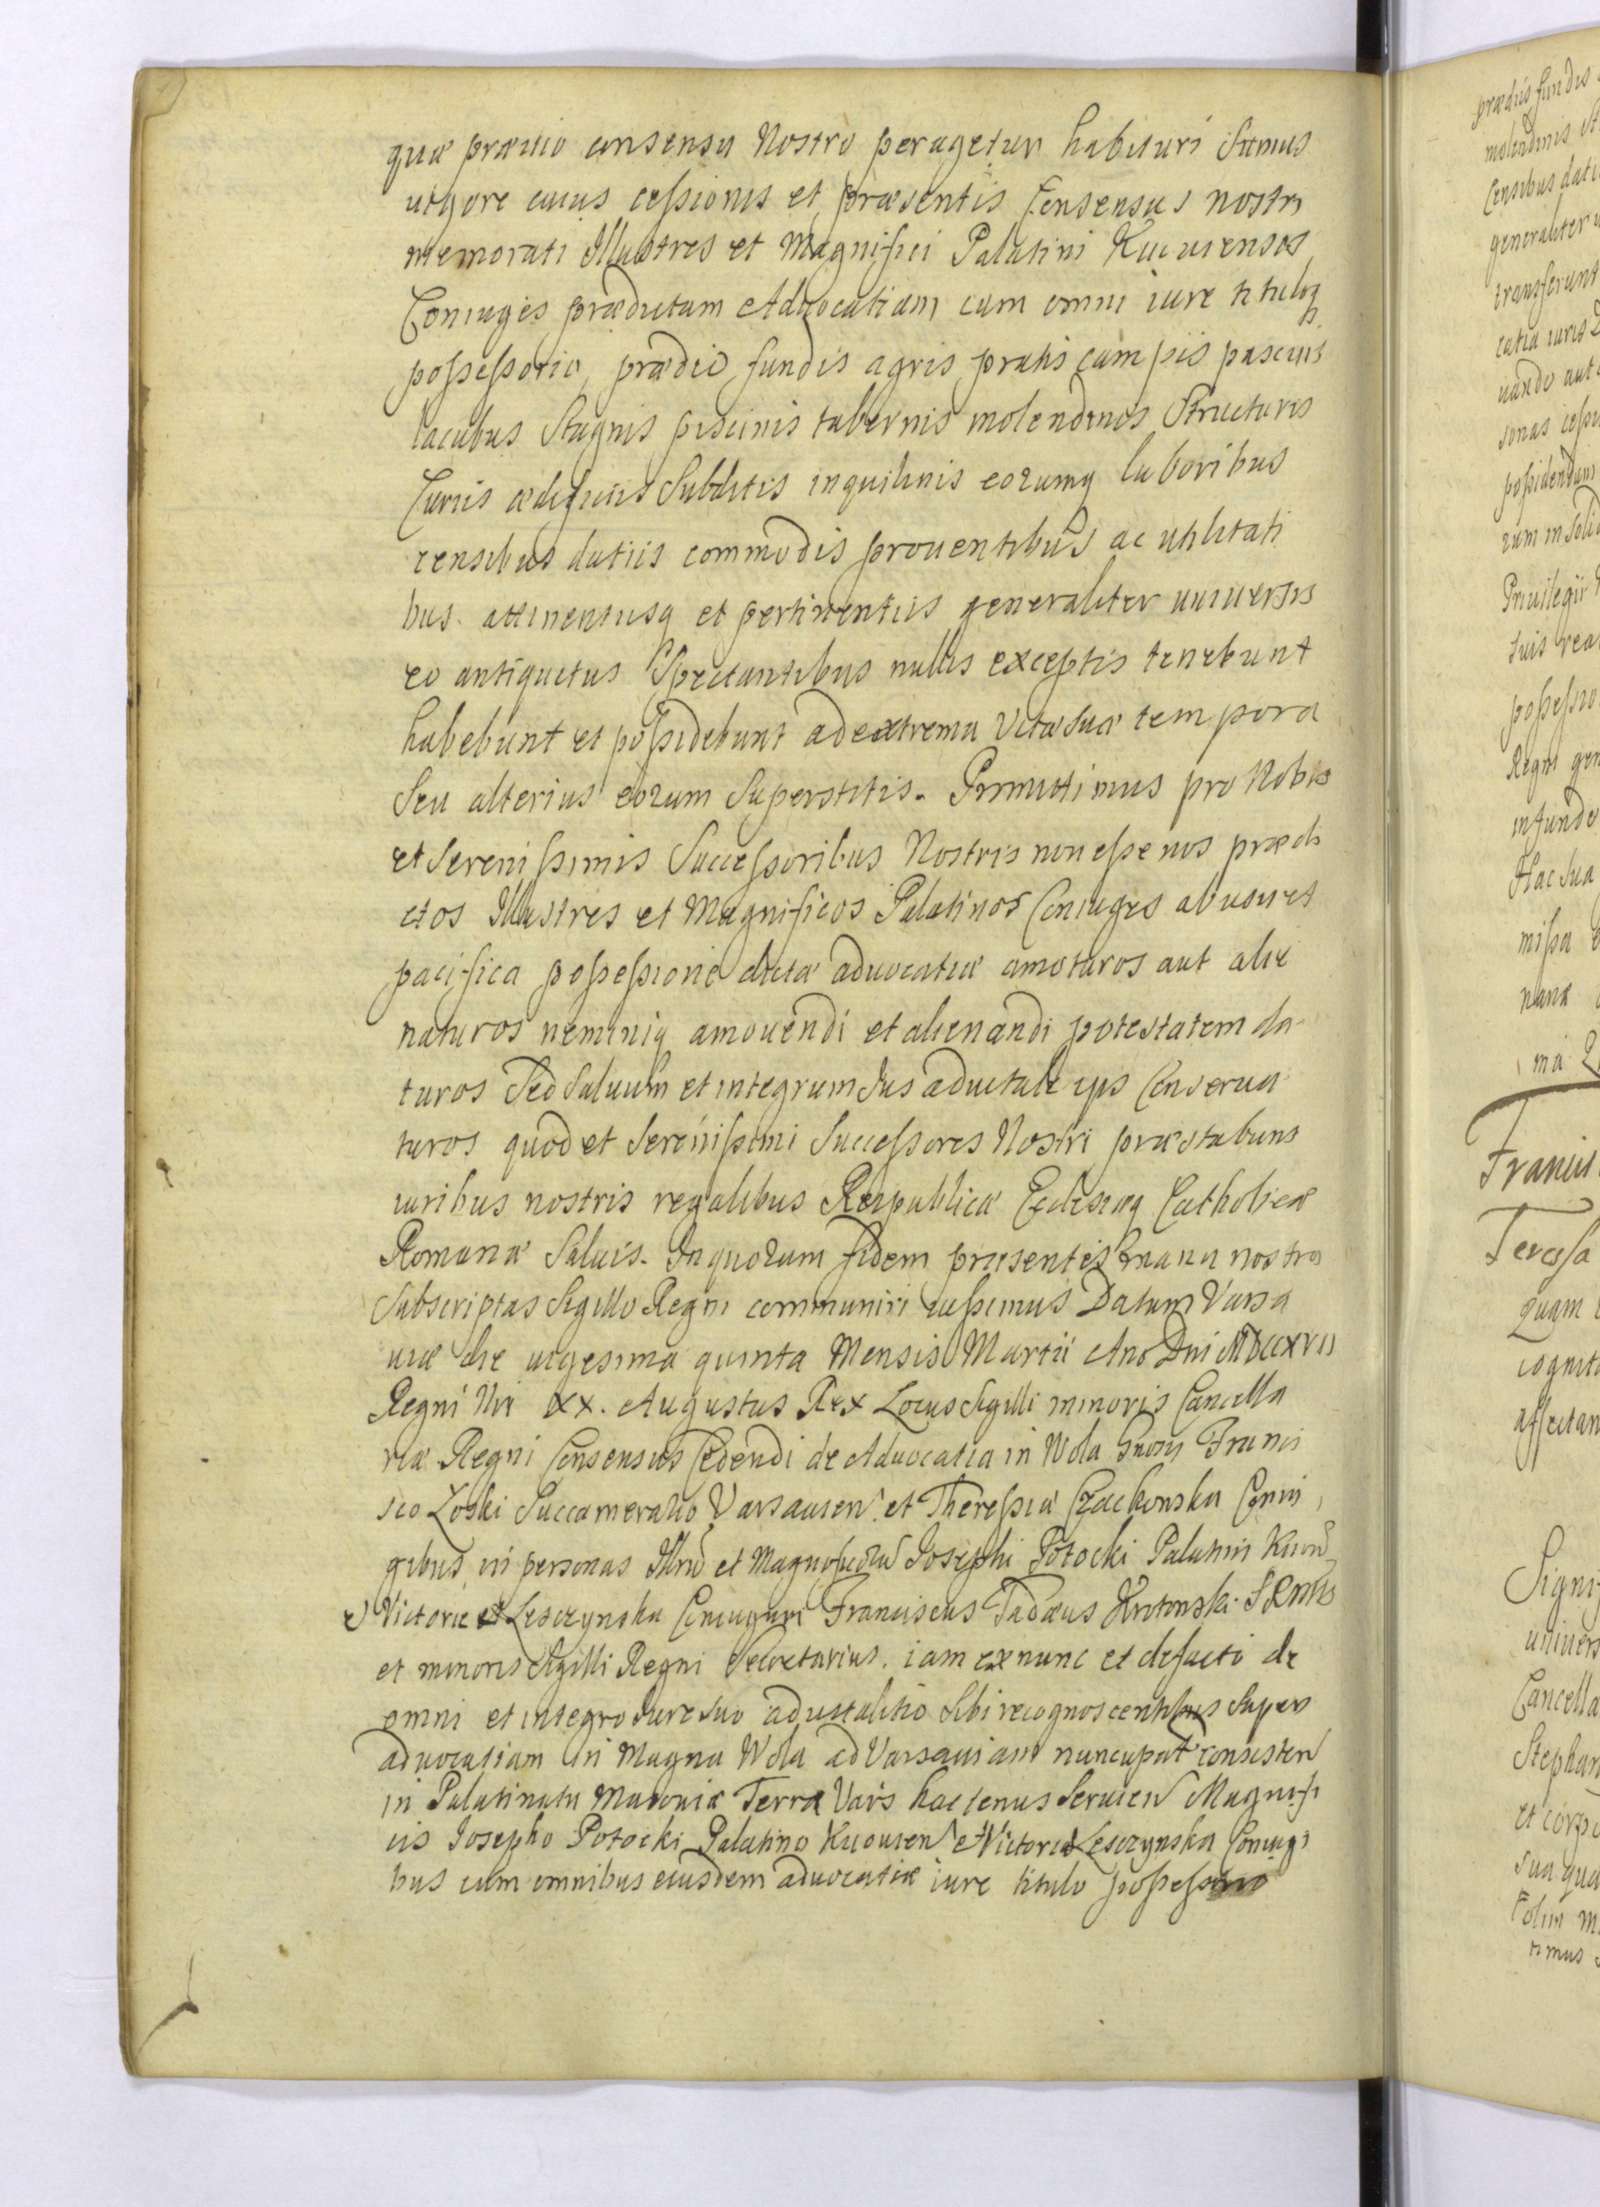 quæ præuio consensu Nostro peragetur habituri Sumus
uigore cuius cessionis et præsentis Consensus nostri
memorati Illustres et Magnifici Palatini Kiiouienses
Coniuges prædictam Aduocatiam cum omni iure tituloq
possessorio, prædio fundis agris pratis campis pascuis
lacubus Stagnis piscinis tabernis molendinis Structuris
Curiis ædificiis Subditis inquilinis eorumq laboribus
censibus datiis commodis prouentibus ac utilitati
bus attinentiisq et pertinentiis generaliter uniuersis
eo antiquitus Spectantibus nullis exceptis tenebunt
habebunt et possidebunt ad extrema Vitæ Suæ tempora
Seu alterius eorum Superstitis. Promittimus pro Nobis
et Serenissimis Successoribus Nostris non esse nos prædi
ctos Illustres et Magnificos Palatinos Coniuges ab usu et
pacifica possessione dictæ aduocatiæ amoturos aut alie
naturos neminiq amouendi et alienandi potestatem da
turos Sed Saluum et integrum Jus aduitale ijs Conserua
turos quod et Serenissimi Successores Nostri præstabunt
iuribus nostris regalibus Reipublicæ Ecclesiæq Catholicæ
Romanæ Saluis. In quorum fidem præsentes manu nostra
Subscriptas Sigillo Regni communiri iussimus Datum Varsa
uiæ die uigesima quinta Mensis Martii Ano Dni MDCCXVII
Regni Nri XX. Augustus Rex Locus Sigilli minoris Cancella
riæ Regni Consensus Cedendi de Aduocatia in Wola Gnosis Franci
sco Zoski Succamerario Varsauien et Theressiæ Czackonska Coniu
gibus in personas Illriu et Magnificoru Josephi Potocki Palatini Kiiou
et Victoriæ Lesczynska Coniugum Franciscus Tadæus Krotowski S R Mtis
et minoris Sigilli Regni Secretarius. iam ex nunc et de facto de
omni et integro Iure Suo aduitalitio Sibi recognoscentibus Super
aduocatiam in Magna Wola ad Varsauiam nuncupat consisten
in Palatinatu Masouiæ Terra Vars hactenus Seruien Magnifi
cis Josepho Potocki Palatino Kiiouien et Victoriæ Lesczynska Coniugi
bus cum omnibus eiusdem aduocatiæ iure titulo possessorio